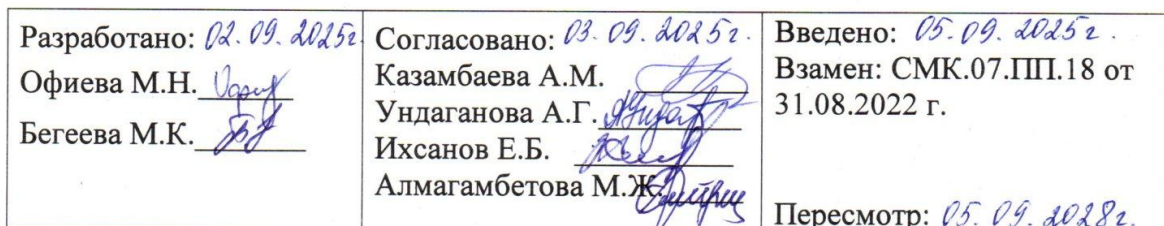 Разработано: 02.09.2025г.
Офиева М.Н.
Бегеева М.К.
Согласовано: 03.09.2025г.
Казамбаева А.М.
Ундаганова А.Г.
Ихсанов Е.Б.
Алмагамбетова М.Ж.
Введено: 05.09.2025г.
Взамен: СМК.07.ПП.18 от
31.08.2022 г.
Пересмотр: 05.09.2028г.